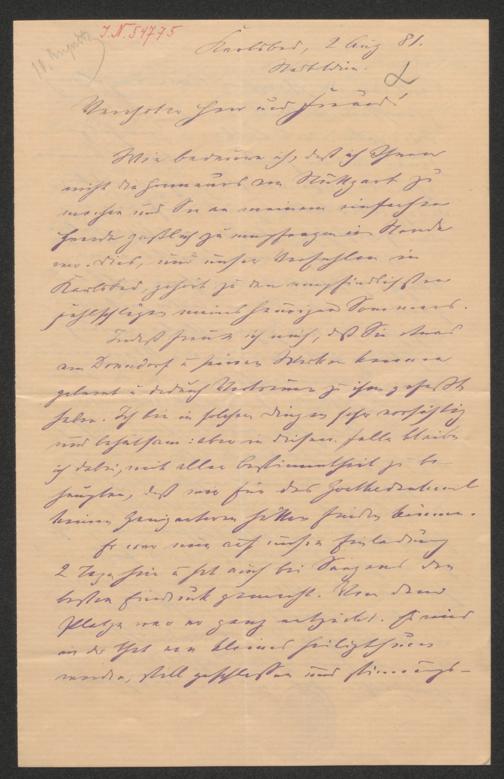 J.N. 54775
Karlsbad, 2 Aug 81.
Verehrter Herr und Freund!
Wie bedaure ich, daß ich Ihnen
nicht die Honneurs von Stuttgart zu
machen und Sie an meinem einfachen
Heerde gastlich zu empfangen im Stande
war. Dies, und unser Verfehlen in
Karlsbad, gehört zu den empfindlichsten
Fehlschlägen meines heurigen Sommers.
Indeß freut es mich, daß Sie etwas
von Donndorf u seinen Werken kennen
gelernt u dadurch Vertrauen zu ihm gefaßt
haben. Ich bin in solchen Dingen sehr vorsichtig
und behutsam: aber in diesem Falle bleibe
ich dabei, mit aller Bestimmtheit zu be
haupten, daß wir für das Goethedenkmal
keinen hätten finden können.
Er war nun auf unsere Einladung
2 Tage hier u hat auch bei den
besten Eindruck gemacht. Von dem
Platze war er ganz entzückt. Es wird
in der That ein kleines Heiligthum
werden, still geschlossen und stimmungs-